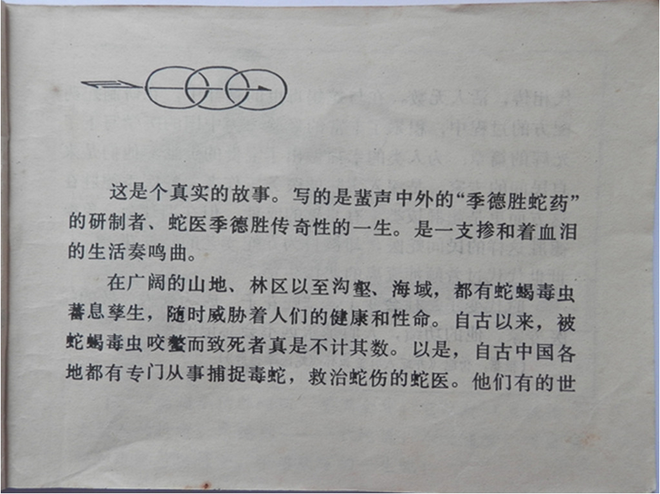 这是个真实的故事。写的是蜚声中外的“季德胜蛇药”
的研制者、蛇医季德胜传奇性的一生。是一支掺和着血泪
的生活奏鸣曲。
在广阔的山地、林区以至沟壑、海域，都有蛇蝎毒虫
蕃息孳生，随时威胁着人们的健康和性命。自古以来，被
蛇蝎毒虫咬螫而致死者真是不计其数。以是，自古中国各
地都有专门从事捕捉毒蛇，救治蛇伤的蛇医。他们有的世